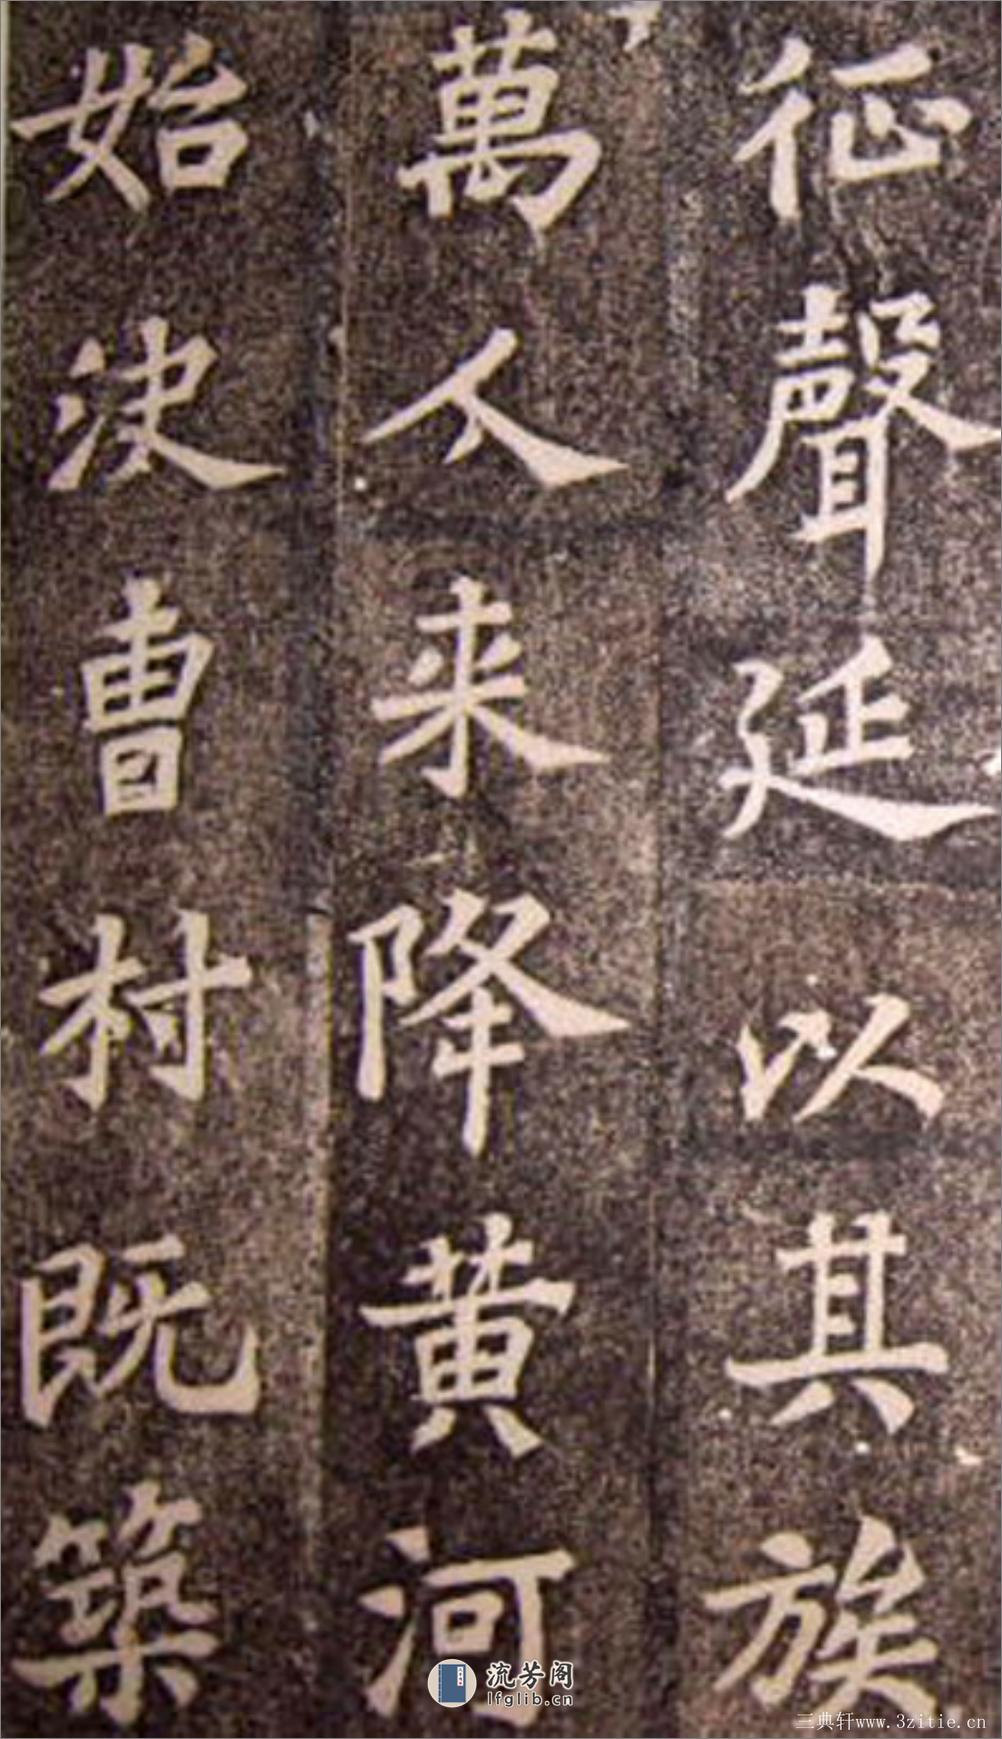 征聲延以其族
萬人來降黄河
始決曹村既築
流芳阁
lfglib.cn
三典轩www.3zitie.cn